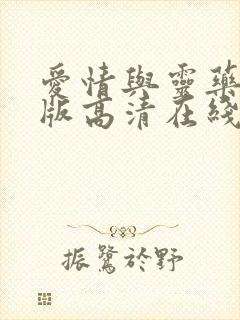 愛情與靈藥
版高清在綫
振鷺於野